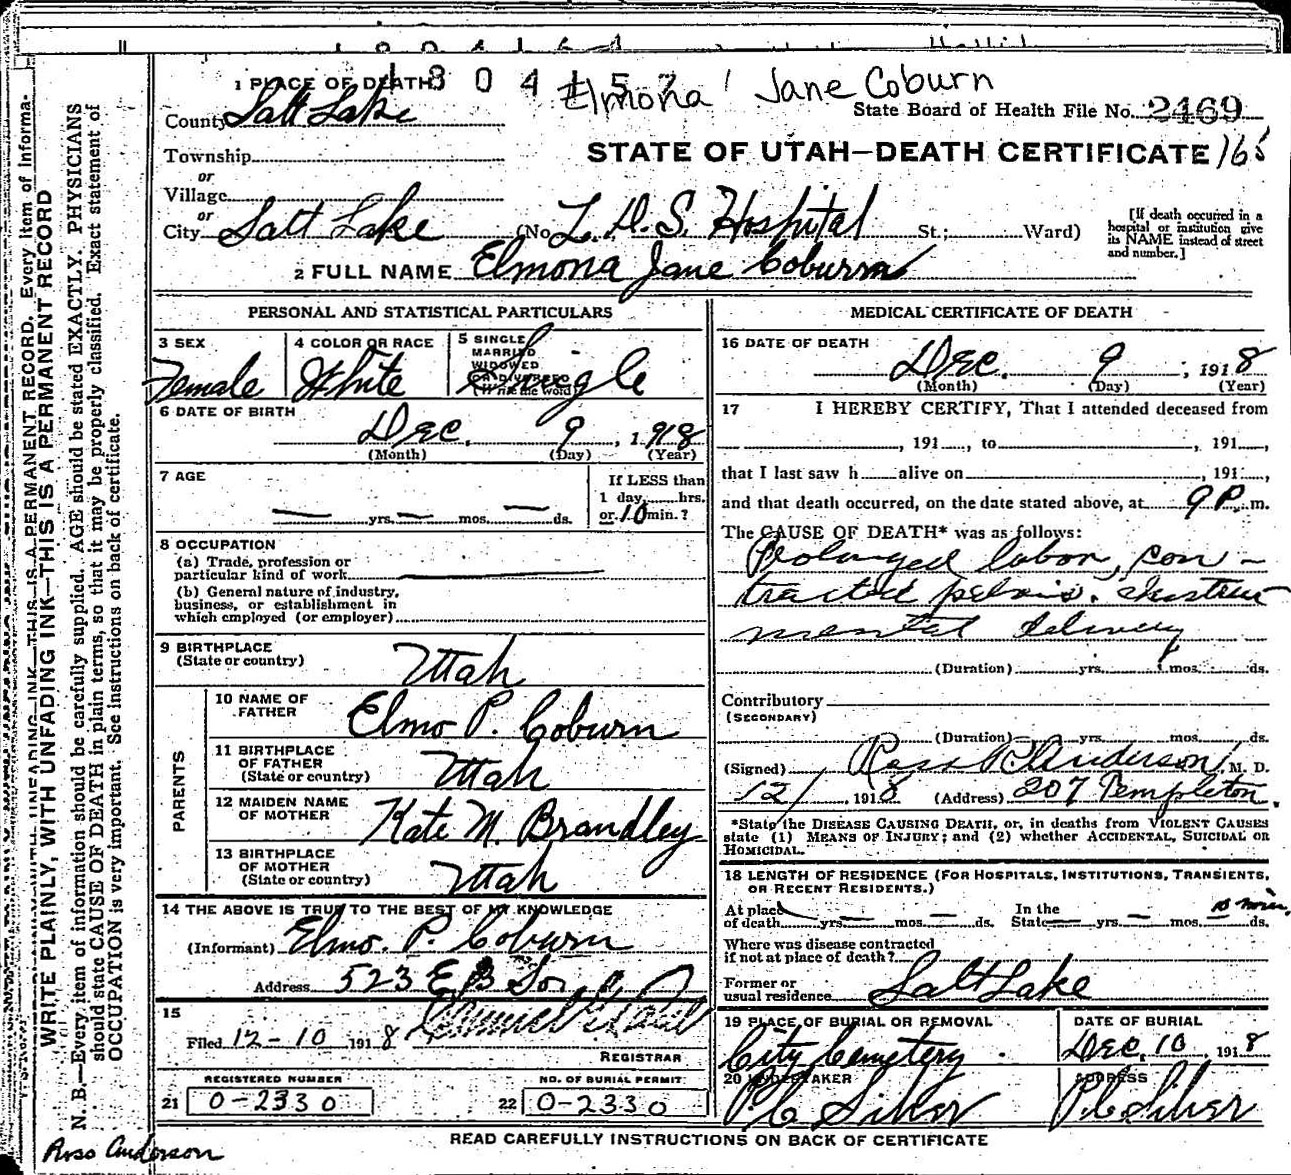 1804157
Elmona Jane Coburn
1 PLACE OF DEATH
State Board of Health File No. 2469
County Salt Lake
STATE OF UTAH—DEATH CERTIFICATE
Township
or
Village
or
City Salt Lake (No. L. D. S. Hospital St.; Ward)
[If death occurred in a hospital or institution give its NAME instead of street and number.]
2 FULL NAME Elmona Jane Coburn
PERSONAL AND STATISTICAL PARTICULARS
3 SEX
Female
4 COLOR OR RACE
White
5 SINGLE
MARRIED
WIDOWED
OR DIVORCED
(Write the word)
Single
6 DATE OF BIRTH
Dec. 9, 1918
(Month) (Day) (Year)
7 AGE
— yrs. — mos. — ds.
If LESS than
1 day, hrs.
or 10 min.?
8 OCCUPATION
(a) Trade, profession or
particular kind of work
(b) General nature of industry,
business, or establishment in
which employed (or employer)
9 BIRTHPLACE
(State or country)
Utah
PARENTS
10 NAME OF
FATHER
Elmo P. Coburn
11 BIRTHPLACE
OF FATHER
(State or country)
Utah
12 MAIDEN NAME
OF MOTHER
Kate M. Brandley
13 BIRTHPLACE
OF MOTHER
(State or country)
Utah
14 THE ABOVE IS TRUE TO THE BEST OF MY KNOWLEDGE
(Informant) Elmo. P. Coburn
Address 523 E
15
Filed 12-10 1918
REGISTRAR
REGISTERED NUMBER
21 0-2330
NO. OF BURIAL PERMIT
22 0-2330
MEDICAL CERTIFICATE OF DEATH
16 DATE OF DEATH
Dec. 9, 1918
(Month) (Day) (Year)
17 I HEREBY CERTIFY, That I attended deceased from
, 191 , to , 191 ,
that I last saw h alive on , 191 ,
and that death occurred, on the date stated above, at 9 P. m.
The CAUSE OF DEATH* was as follows:
Prolonged labor, con-
tracted pelvis. Instru
mental delivery
(Duration) yrs. mos. ds.
Contributory
(SECONDARY)
(Duration) yrs. mos. ds.
(Signed) Ross Anderson, M. D.
12/ , 1918 (Address) 207 Templeton.
*State the DISEASE CAUSING DEATH, or, in deaths from VIOLENT CAUSES
state (1) MEANS OF INJURY; and (2) whether ACCIDENTAL, SUICIDAL OR
HOMICIDAL.
18 LENGTH OF RESIDENCE (FOR HOSPITALS, INSTITUTIONS, TRANSIENTS,
OR RECENT RESIDENTS.)
At place
of death yrs. — mos. — ds.
In the
State — yrs. — mos. 10 min. ds.
Where was disease contracted
if not at place of death?
Former or
usual residence Salt Lake
19 PLACE OF BURIAL OR REMOVAL
City Cemetery.
DATE OF BURIAL
Dec. 10 1918
20 UNDERTAKER
ADDRESS
READ CAREFULLY INSTRUCTIONS ON BACK OF CERTIFICATE
Ross Anderson
WRITE PLAINLY, WITH UNFADING INK—THIS IS A PERMANENT RECORD
N. B.—Every item of information should be carefully supplied. AGE should be stated EXACTLY. PHYSICIANS
should state CAUSE OF DEATH in plain terms, so that it may be properly classified. Exact statement of
OCCUPATION is very important. See instructions on back of certificate.